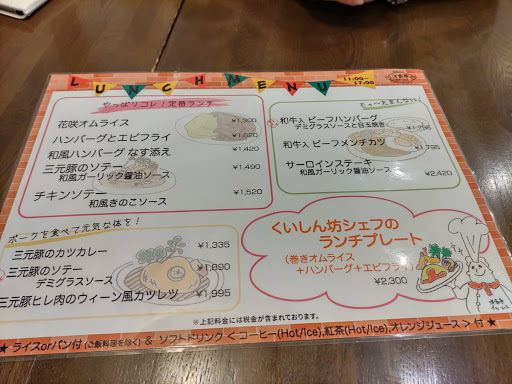 LUNCH MENU
11:00~
17:00
やっぱりコレ!定番ランチ
花咲オムライス ¥1,300
ハンバーグとエビフライ ¥1,620
和風ハンバーグ なす添え ¥1,420
三元豚のソテー ¥1,490
和風ガーリック醤油ソース
チキンソテー ¥1,520
和風きのこソース
ポークを食べて元気な体を!
三元豚のカツカレー ¥1,335
三元豚のソテー ¥1,890
デミグラスソース
三元豚ヒレ肉のウィーン風カツレツ ¥1,995
和牛入 ビーフハンバーグ
デミグラスソースと目玉焼き
和牛入 ビーフメンチカツ ¥1,795
サーロインステーキ
和風ガーリック醤油ソース ¥2,420
くいしん坊シェフの
ランチプレート
(巻きオムライス
+ハンバーグ+エビフライ)
¥2,300
※上記料金には税金が含まれております。
★ ライスorパン付(ご飯料理を除く) & ソフトドリンク < コーヒー(Hot/Ice),紅茶(Hot/Ice),オレンジジュース > 付 ★